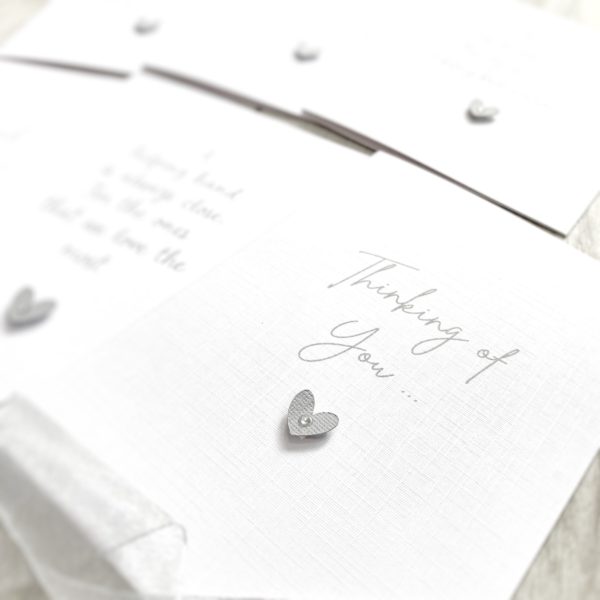 Thinking of
You ...
helping hand
is always close.
for the ones
that we love the
most